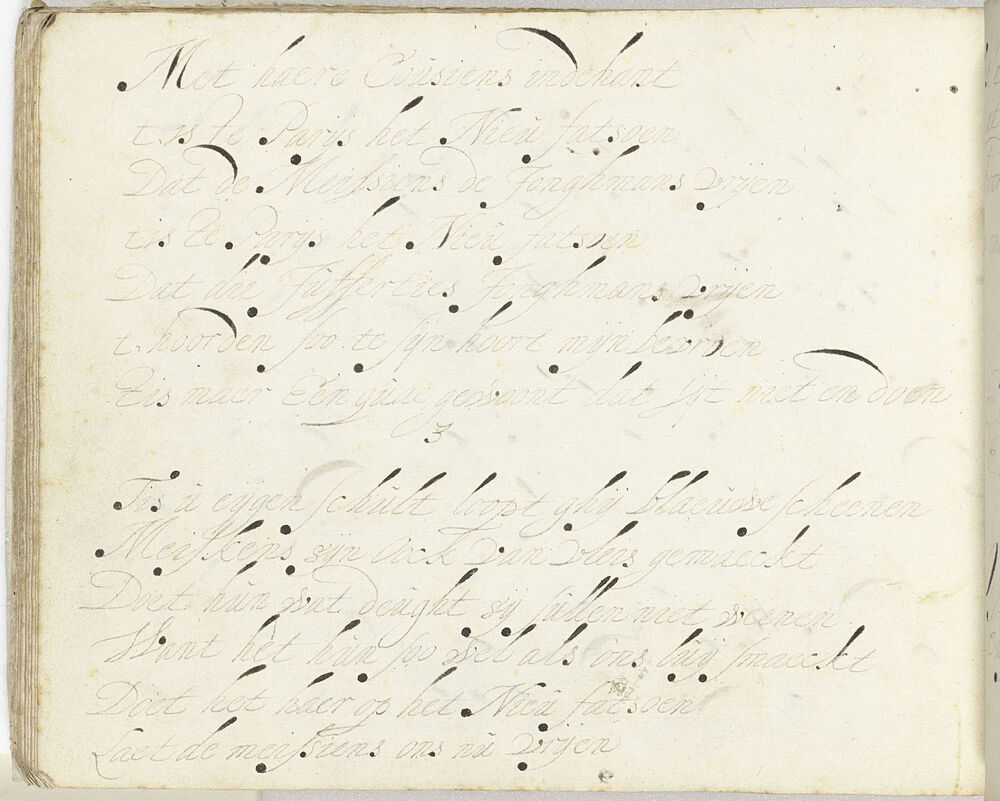 Met haere Coúsiens indehant
t is te Parijs het Nieú fatsoen
Dat de Meissiens de Jonghmans vrijen
t is te Parijs het Nieú fatsoen
Dat die Júfferties Jonghmans vrijen
t hoorden soo te sijn hoort mijn
tis maer Een gewoont dat sijt niet en doen
3
Tis ú eijgen schúlt loopt ghij blaeúwe scheenen
Meijskens sijn oock van vleis gemaeckt
Doet hún wat deúght sij súllen niet weenen
Want het hún soo wel als ons lúij smaeckt
Doet het haer op het Nieú fatsoen
Laet de meissiens ons nú vrijen